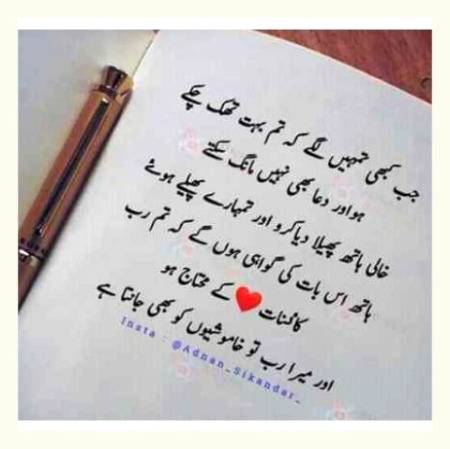 جب کبھی تمہیں لگے کہ تم بہت تھک چکے
ہو اور دعا بھی نہیں مانگ سکتے
خالی ہاتھ پھیلا دیا کرو اور تمہارے پھیلے ہوئے
ہاتھ اس بات کی گواہی ہوں گے کہ تم رب
کائنات ❤ کے محتاج ہو
اور میرا رب تو خاموشیوں کو بھی جانتا ہے
Insta : @Adnan_Sikandar_